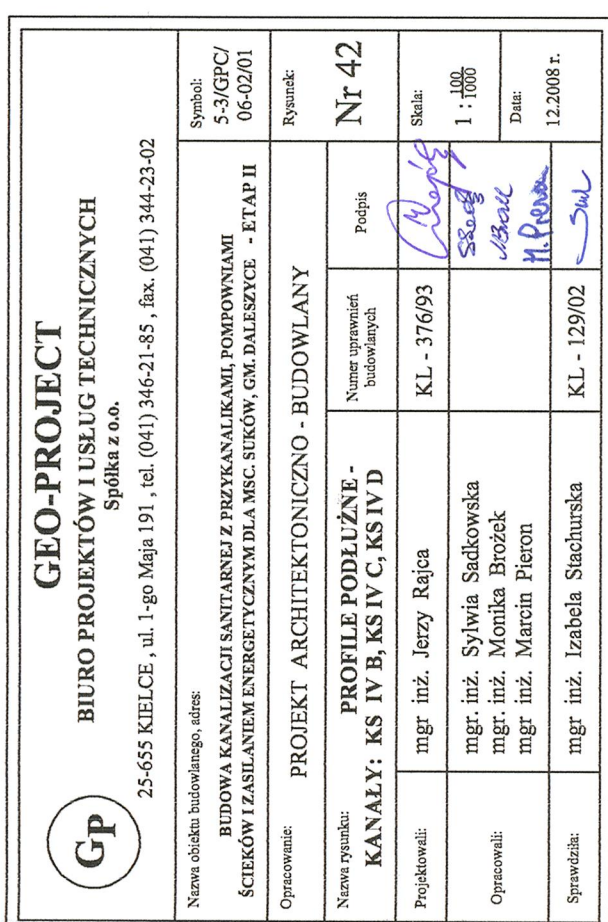 GP
GEO-PROJECT
BIURO PROJEKTÓW I USŁUG TECHNICZNYCH
Spółka z o.o.
25-655 KIELCE , ul. 1-go Maja 191 , tel. (041) 346-21-85 , fax. (041) 344-23-02
Nazwa obiektu budowlanego, adres:
BUDOWA KANALIZACJI SANITARNEJ Z PRZYKANALIKAMI, POMPOWNIAMI
ŚCIEKÓW I ZASILANIEM ENERGETYCZNYM DLA MSC. SUKÓW, GM. DALESZYCE - ETAP II
Symbol:
5-3/GPC/
06-02/01
Opracowanie:
PROJEKT ARCHITEKTONICZNO - BUDOWLANY
Rysunek:
Nr 42
Nazwa rysunku:
PROFILE PODŁUŻNE -
KANAŁY: KS IV B, KS IV C, KS IV D
Numer uprawnień
budowlanych
Podpis
Projektowali:
mgr inż. Jerzy Rajca
KL - 376/93
Skala:
1 : 100/1000
Opracowali:
mgr. inż. Sylwia Sadkowska
mgr. inż. Monika Brożek
mgr inż. Marcin Pieron
M. Pieron
Data:
12.2008 r.
Sprawdziła:
mgr inż. Izabela Stachurska
KL - 129/02